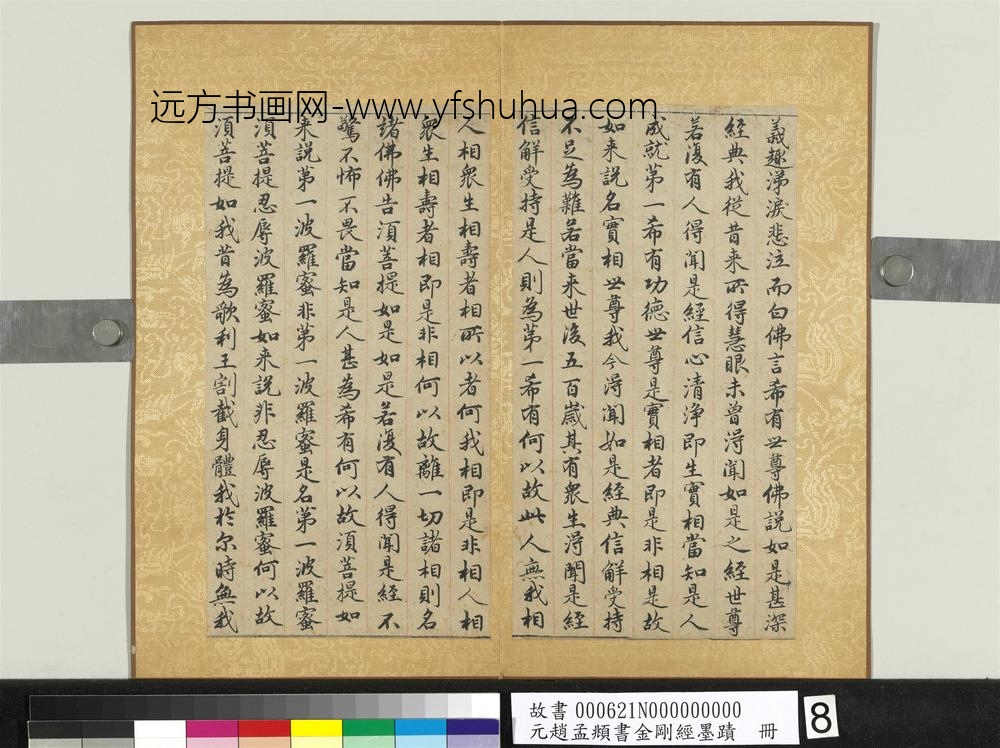 远方书画网-www.yfshuhua.com
義趣涕淚悲泣而白佛言希有世尊佛說如是甚深
經典我從昔来所得慧眼未曾得聞如是之經世尊
若復有人得聞是經信心清淨即生實相當知是人
成就第一希有功德世尊是實相者即是非相是故
如来說名實相世尊我今得聞如是經典信解受持
不足為難若當来世後五百歲其有衆生得聞是經
信解受持是人則為第一希有何以故此人無我相
人相衆生相壽者相所以者何我相即是非相人相
衆生相壽者相即是非相何以故離一切諸相則名
諸佛佛告須菩提如是如是若復有人得聞是經不
驚不怖不畏當知是人甚為希有何以故須菩提如
来說第一波羅蜜非第一波羅蜜是名第一波羅蜜
須菩提忍辱波羅蜜如来說非忍辱波羅蜜何以故
須菩提如我昔為歌利王割截身體我於尔時無我
故書 000621N000000000
元趙孟頫書金剛經墨蹟 冊
8